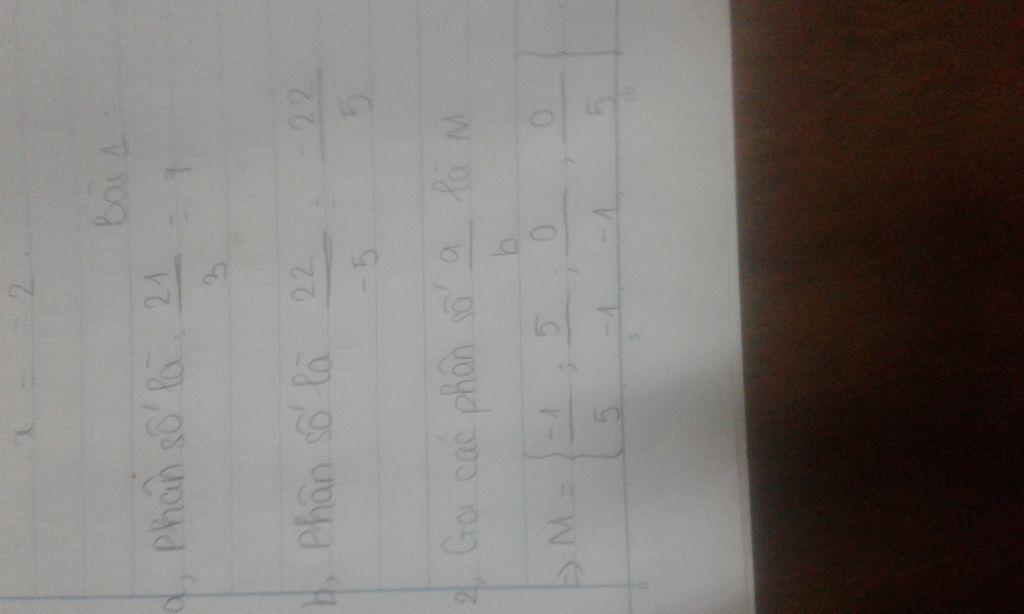 x = - 2.
Bài 1:
a, Phân số là: 21/3 = 7
b, Phân số là: 22/-5 = -22/5
2, Gọi các phân số a/b là M
=> M = { -1/5 ; 5/-1 ; 0/-1 , 0/5 }